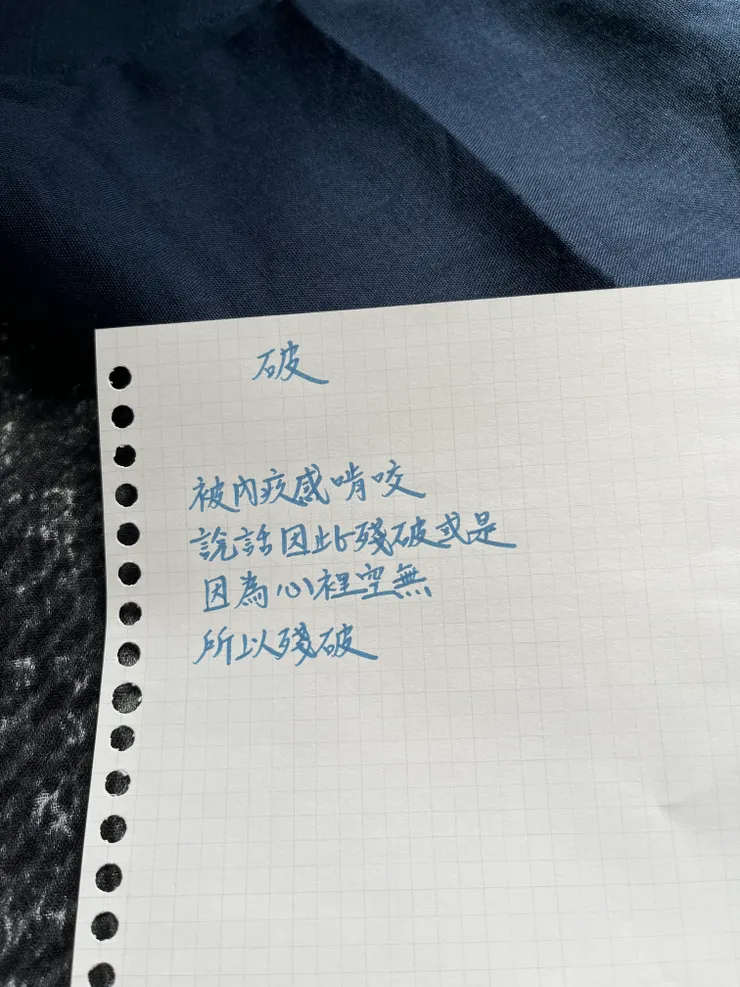 破
被內疚感啃咬
說話因此殘破或是
因為心裡空無
所以殘破